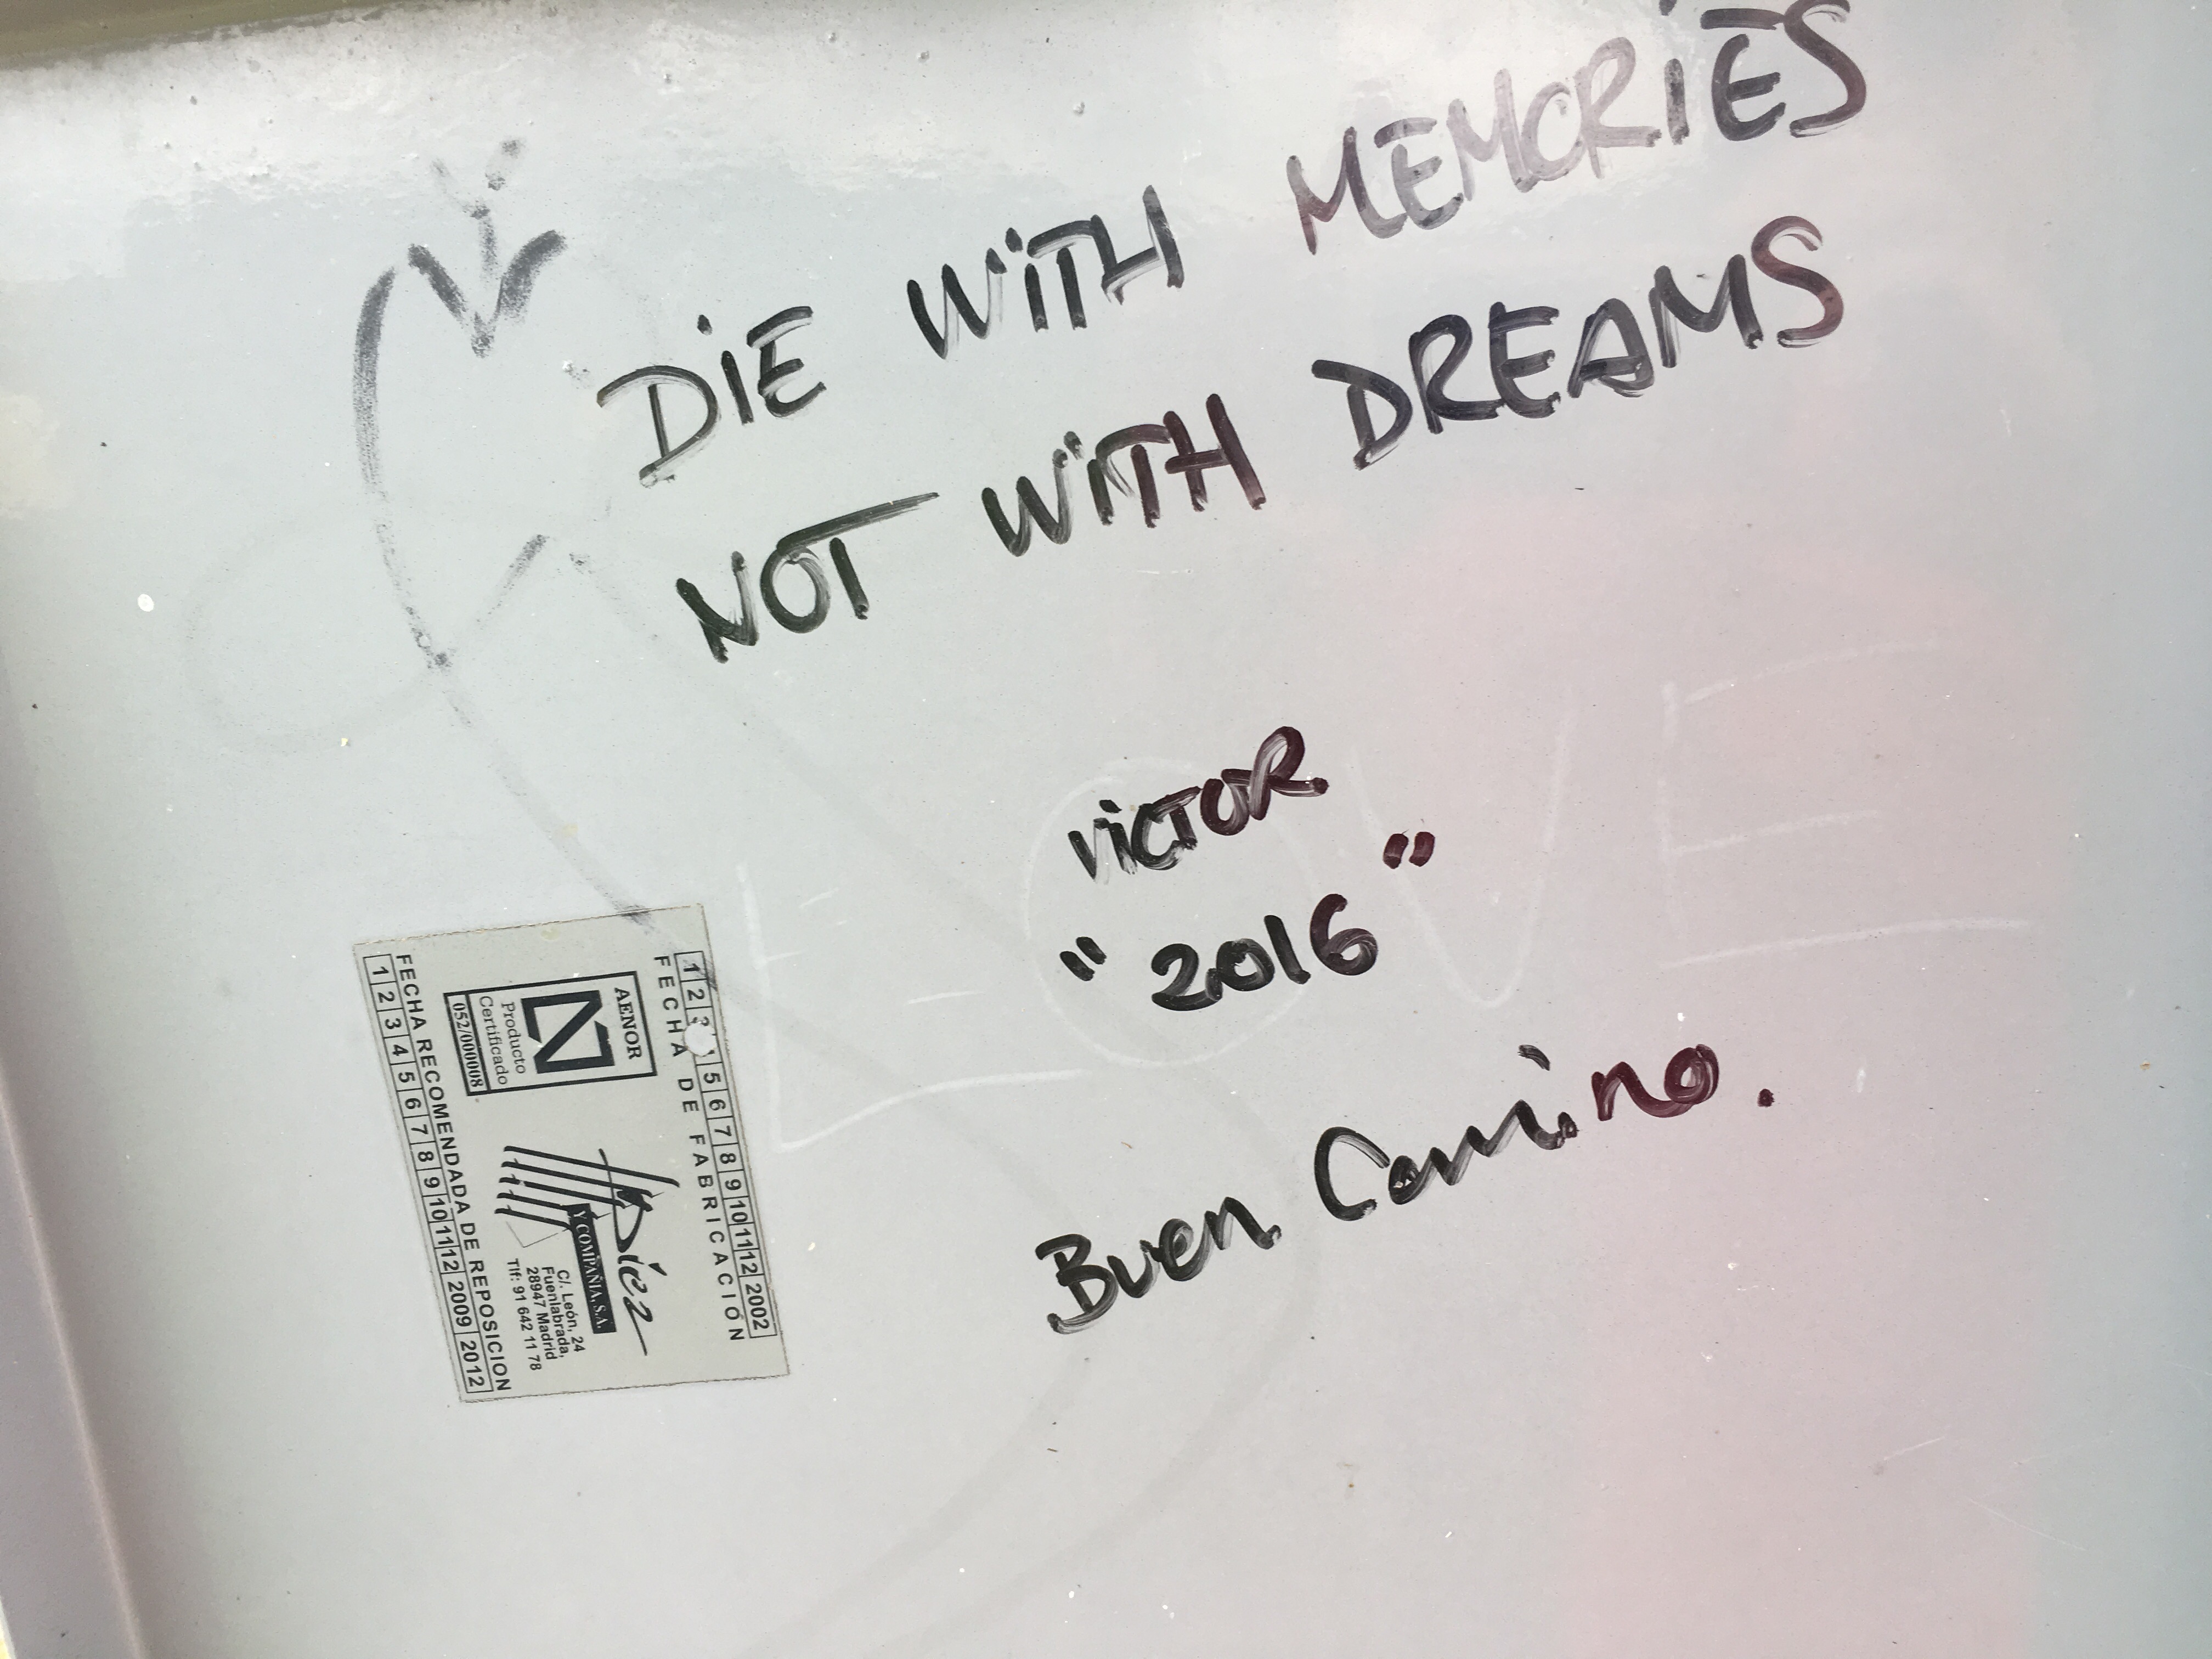 DiE WiTH MEMORiES
NOT WiTH DREAMS
ViCTOR
"2016"
Buen Camino.
LOVE
1 2 3 5 6 7 8 9 10 11 12 2002
FECHA DE FABRICACIÓN
AENOR
Producto
Certificado
052/000008
Diez
Y COMPAÑIA, S.A.
C/. León, 24
Fuenlabrada,
28947 Madrid
Tlf: 91 642 11 78
FECHA RECOMENDADA DE REPOSICION
1 2 3 4 5 6 7 8 9 10 11 12 2009 2012